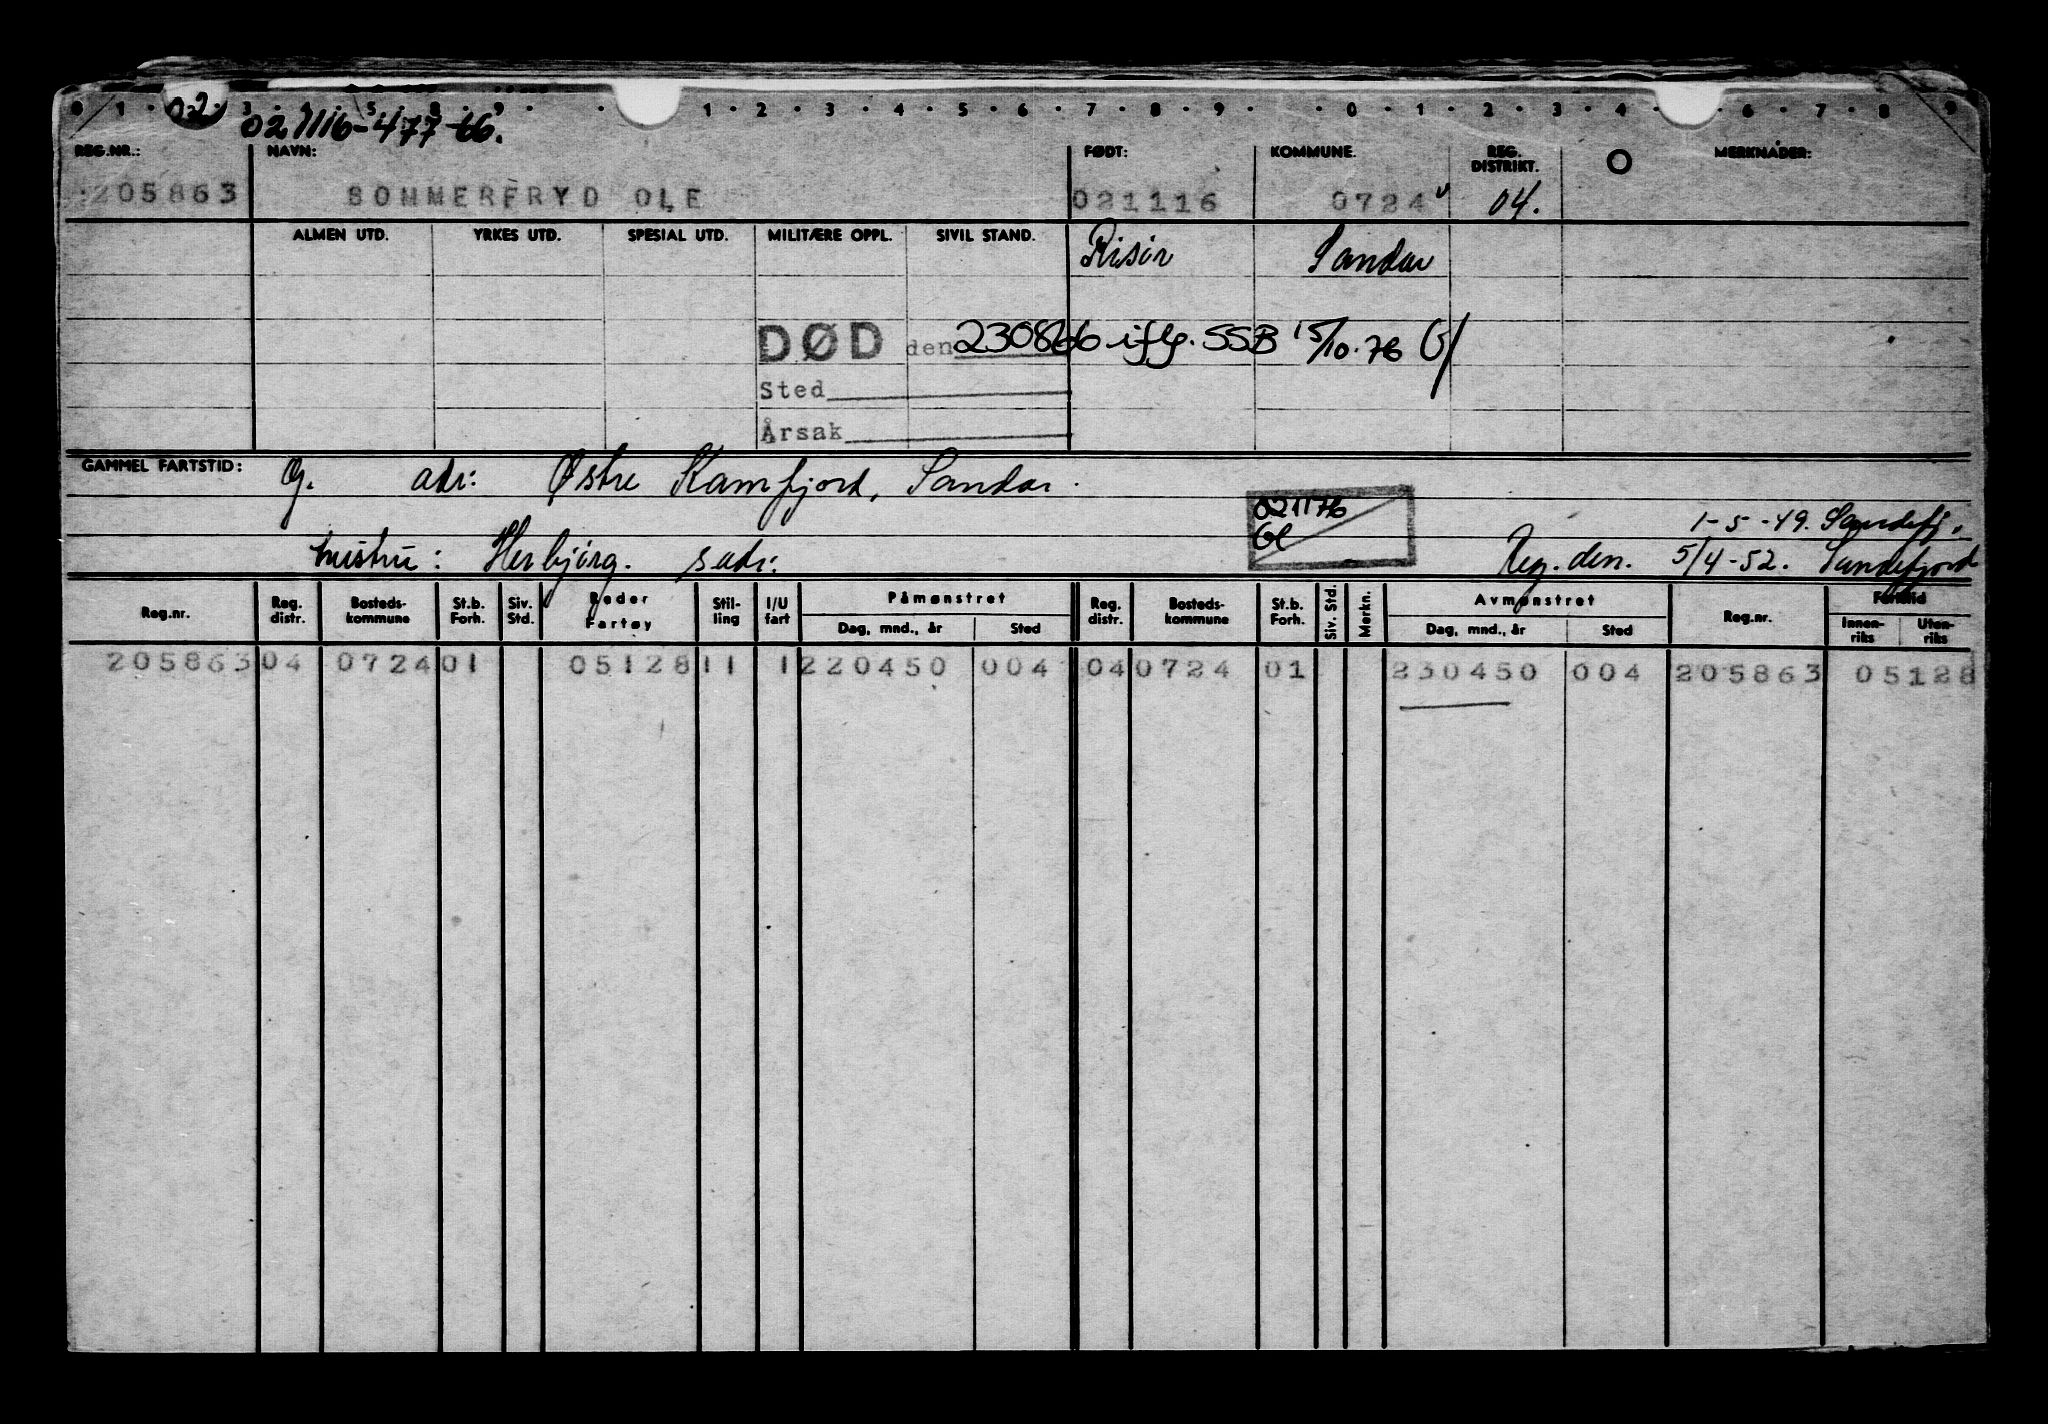 0 1 02 3 4 5 8 9 1 2 3 4 5 6 7 8 9 0 1 2 3 4 6 7 8 9
021116-477-66.
REG.NR.: NAVN: FØDT: KOMMUNE. REG. DISTRIKT. MERKNADER:
205863 SOMMERFRYD OLE 021116 0724 04.
ALMEN UTD. YRKES UTD. SPESIAL UTD. MILITÆRE OPPL. SIVIL STAND. Risör Sandar
DØD den 230866 iflg. SSB 15/10.76
Sted
Årsak
GAMMEL FARTSTID: G. adr: Østre Kamfjord, Sandar.
021176 1-5-49. Sandefj.
hustru: Herbjørg. s adr: Reg. den. 5/4-52. Sandefjord
Reg.nr. Reg. distr. Bosteds-kommune St.b. Forh. Siv. Std. Reder Fartøy Stil-ling I/U fart Påmønstret Reg. distr. Bosteds-kommune St.b. Forh. Siv. Std. Merkn. Avmønstret Reg.nr. Fartstid
Dag, mnd., år Sted Dag, mnd., år Sted Innen-riks Uten-riks
205863 04 0724 01 05128 11 1 220450 004 04 0724 01 230450 004 205863 05128